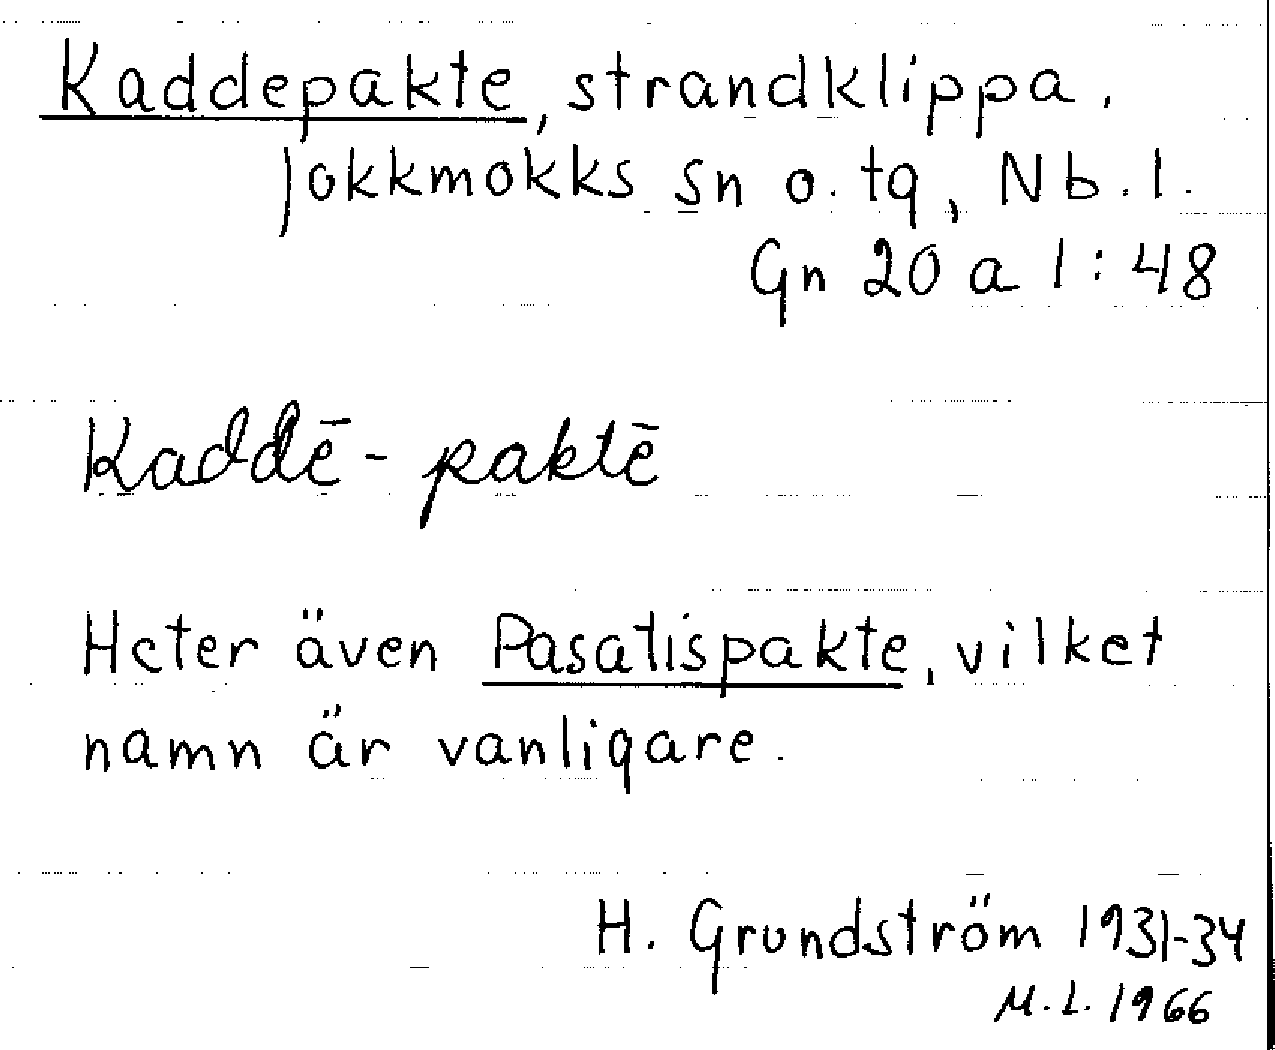 Kaddepakte, strandklippa.
Jokkmokks sn o. tg, Nb. l.
Gn 20 a 1:48
Kaddē-paktē
Heter även Pasatispakte, vilket
namn är vanligare.
H. Grundström 1931-34
M.L. 1966